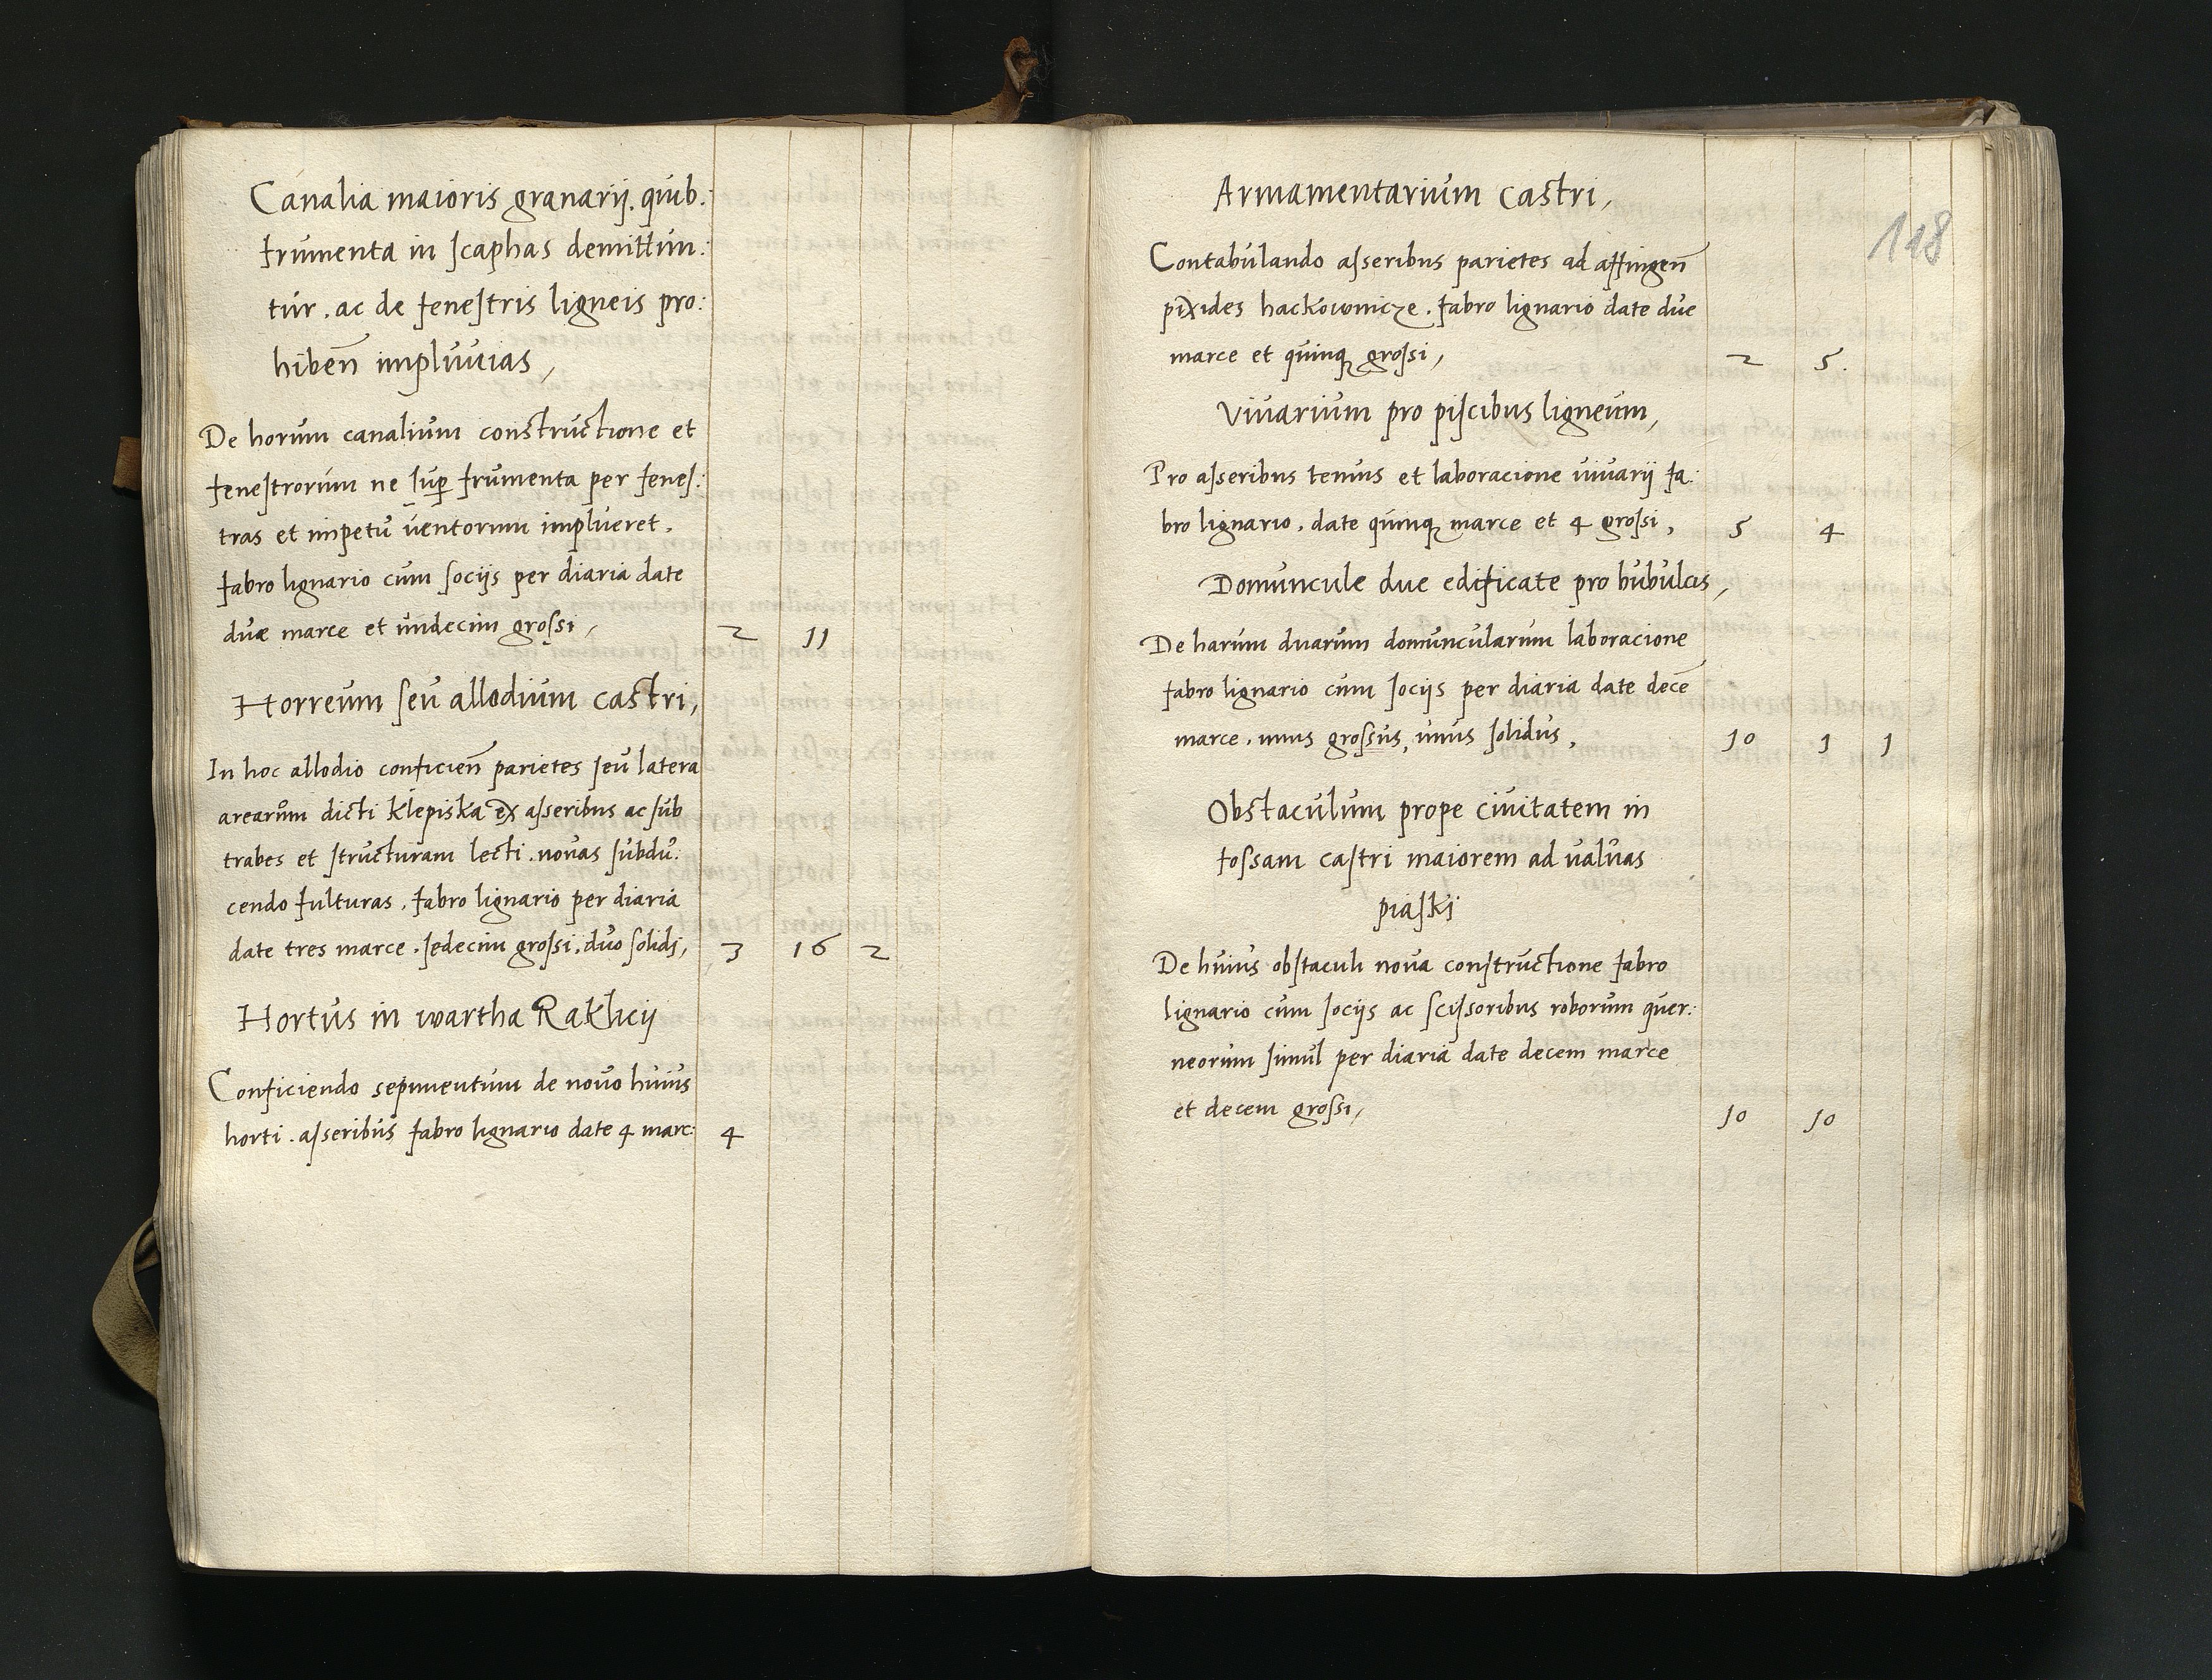 Canalia maioris granarij. quib:
frumenta in scaphas demittun:
tur. ac de fenestris ligneis pro:
hiben̄ impluuias,
De horum canalium constructione et
fenestrorum ne sup̱ frumenta per fenes:
tras et impetu ventorum implueret.
fabro lignario cum socijs per diaria date
duæ marce et undecim grossi, 2 11
Horreum seu allodium castri,
In hoc allodio conficien̄ parietes seu latera
arearum dicti klepiska ex asseribus ac sub
trabes et structuram lecti. nouas subdu:
cendo fulturas. fabro lignario per diaria
date tres marce. sedecim grossi. duo solidj, 3 16 2
Hortus in wartha Raklicij
Conficiendo sepimentum de nouo huius
horti. asseribus fabro lignario date 4 marc: 4
118
Armamentarium castri,
Contabulando asseribus parietes ad affingen̄
pixides hackownicze. fabro lignario date due
marce et quinqꝫ grossi, 2 5.
Viuarium pro piscibus ligneum,
Pro asseribus tenuis et laboracione viuarij fa:
bro lignario. date quinqꝫ marce et 4 grossi, 5 4
Domuncule due edificate pro bubulcis,
De harum duarum domuncularum laboracione
fabro lignario cum socijs per diaria date decē
marce. unus grossus, unus solidus, 10 1 1
Obstaculum prope ciuitatem in
fossam castri maiorem ad valuas
piaskj
De huius obstaculi noua constructione fabro
lignario cum socijs ac scissoribus roborum quer:
neorum simul per diaria date decem marce
et decem grossi, 10 10